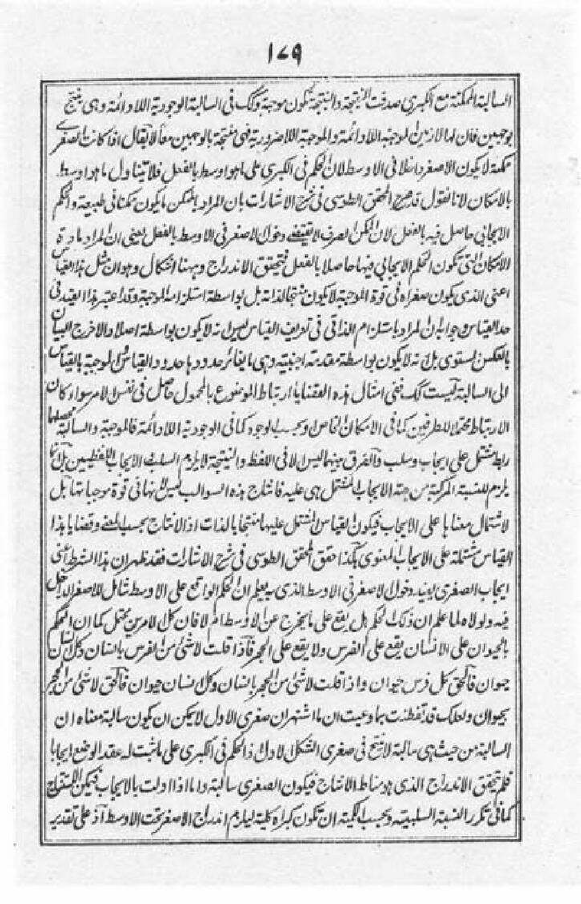 ١٧٩
السالبة الممكنة مع الكبرى صدقت النتيجة والنتيجة تكون موجبة وكذلك في السالبة الوجودية اللادائمة وهي تنتج
بوجهين فان لها لازمين الموجبة اللادائمة والموجبة اللاضرورية فهي منتجة بالوجهين معا لا يقال اذا كانت الصغرى
ممكنة لا يكون الاصغر داخلا في الاوسط لان الحكم في الكبرى على ما هو اوسط بالفعل فلا يتناول ما هو اوسط
بالامكان لانا نقول قد صرح المحقق الطوسي في شرح الاشارات بان المراد بالممكن ما يكون ممكنا في طبيعة والحكم
الايجابي حاصل فيه بالفعل لان الممكن الصرف لا يقتضي دخول الاصغر في الاوسط بالفعل يعني ان المراد مادة
الامكان التي تكون الحكم الايجابي فيها حاصلا بالفعل فيتحقق الاندراج وههنا اشكال وهو ان مثل هذا القياس
اعني الذي يكون صغراه في قوة الموجبة لا يكون منتجا لذاته بل بواسطة استلزامه الموجبة وقد اعتبر هذا القيد في
حد القياس وجوابه ان المراد باستلزام الذاتي في تعريف القياس ليس انه لا يكون بواسطة اصلا والا خرج البيان
بالعكس المستوي بل انه لا يكون بواسطة مقدمة اجنبية وهي ما يغاير حدودها حدود القياس والموجبة بالقياس
الى السالبة ليست كذلك ففي امثال هذه القضايا ارتباط الموضوع بالمحمول حاصل في نفس الامر سواء كان
الارتباط محتملا للطرفين كما في الامكان الخاص او بحسب الوجود كما في الوجودية اللادائمة فالموجبة والسالبة
ربط مشتمل على ايجاب وسلب والفرق بينهما ليس الا في اللفظ والنتيجة لا يلزم السلب او الايجاب اللفظيين بل
يلزم للنسبة المركبة من جهة الايجاب المشتمل هي عليه فانتاج هذه السوالب ليس لانها في قوة موجباتها بل
لاشتمال معناها على الايجاب فيكون القياس المشتمل عليها منتجا بالذات اذ الانتاج بحسب المعنى وقضايا هذا
القياس مشتملة على الايجاب المعنوي هكذا حقق المحقق الطوسي في شرح الاشارات فقد ظهر ان هذا الشرط اعني
ايجاب الصغرى يفيد دخول الاصغر في الاوسط الذي به يعلم ان الحكم الواقع على الاوسط شامل للاصغر الداخل
فيه ولولاه لما علم ان ذلك الحكم هل يقع على ما يخرج عن الاوسط ام لا فان كلا الامرين محتمل كما ان الحكم
بالحيوان على الانسان يقع على الفرس ولا يقع على الحجر فاذا قلت لا شئ من الفرس بانسان وكل انسان
حيوان فالحق كل فرس حيوان واذا قلت لا شئ من الحجر بانسان وكل انسان حيوان فالحق لا شئ من الحجر
بحيوان ولعلك قد تفطنت بما وعيت ان ما اشتهر ان صغرى الاول لا يمكن ان يكون سالبة معناه ان
السالبة من حيث هي سالبة لا تنتج في صغرى الشكل الاول اذ الحكم في الكبرى على ما ثبت له عقد الوضع ايجابا
فلم يتحقق الاندراج الذي هو مناط الانتاج فيكون الصغرى سالبة واما اذا اولت بالايجاب فيمكن الاستنتاج
كما في تكرر النسبة السلبية وبحسب الكمية ان تكون كبراه كلية ليلزم اندراج الاصغر تحت الاوسط اذ على تقدير